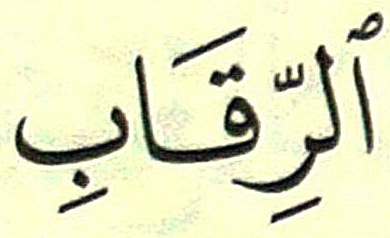 ٱلرِّقَابِ